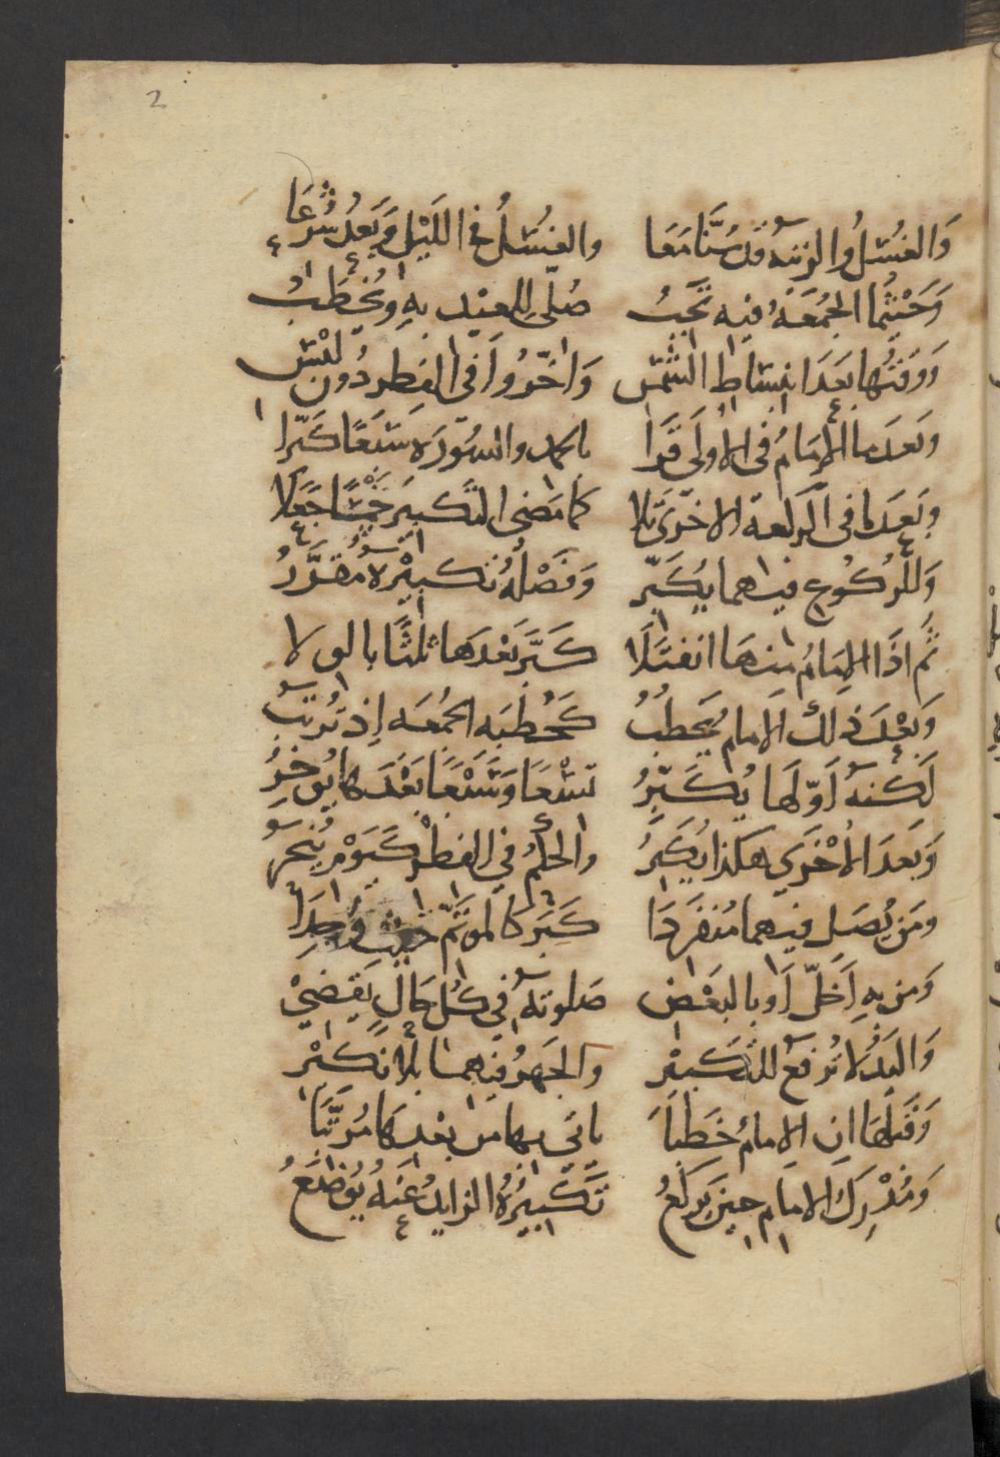 2
وَالغُسْلُ والزينه قَد سُنَّا مَعَا والغُسْلُ في اللَيْلِ وَبَعْدُ شُرِعَا
وَحَيْثُمَا الجُمْعَهُ فيه تَجِبُ صُلّى للعيْد بهِ وَيُخْطَبُ
وَوَقتُها بَعَدَ انبسَاطِ الشَّمْس وَاخّرُوا في الفِطر دُون لَبْسِ
وبَعدهَا الإمَامُ في الأولَى قَرَا بالحمد والسُوّرَه سَبْعًا كَبّرا
وبَعَدَهَا في الركعة الاخّرَى تَلا كما مَضى التَّكبيرَ خَمْسًا جَعَلا
وَللّرُكُوعِ فيهما يُكَبّر وَفَصْلهُ تكبيْرهُ مقدَّرُ
ثُم اذَا الإمَامُ منهَا انفتَلَا كَبَّر بَعْدَهَا ثلثًا بالولا
وَبَعْدَ ذلك الإمام يخطُبُ كَخُطبَه الجُمعَه إذ تُرتبُ
لَكِنهُ أَوّلَها يُكَبّرُ تِسْعَا وَسَبْعَا بَعْدَهَا يُوخرُ
وَبَعدَ الأُخْرَى هكذا يُكَبِرُ والحُكمُ في الفِطْر كَيَوْم يُنحَرُ
ومَن يُصَل فيهما مُنفَرِدَا كَبّر كالموتَمّ حَيْث وُجِدَا
وَمن بهِ أَخَلّ أو بالبَعْض صَلوتهُ في كُل حَالٍ يَقضِيْ
وَاليَدُ لا تُرفعُ للتّكبيْر والجَهرُ فيهمَا بلا نَكيْر
وَقَبْلهَا ان الإمامُ خَطبَا ياتى بها من بعْدهَا مُرَتّبَا
وَمُدْرِكُ الامام حِينَ يركَعُ تَكبيْرُهُ الزايدُ عَنهُ يُوضَعُ